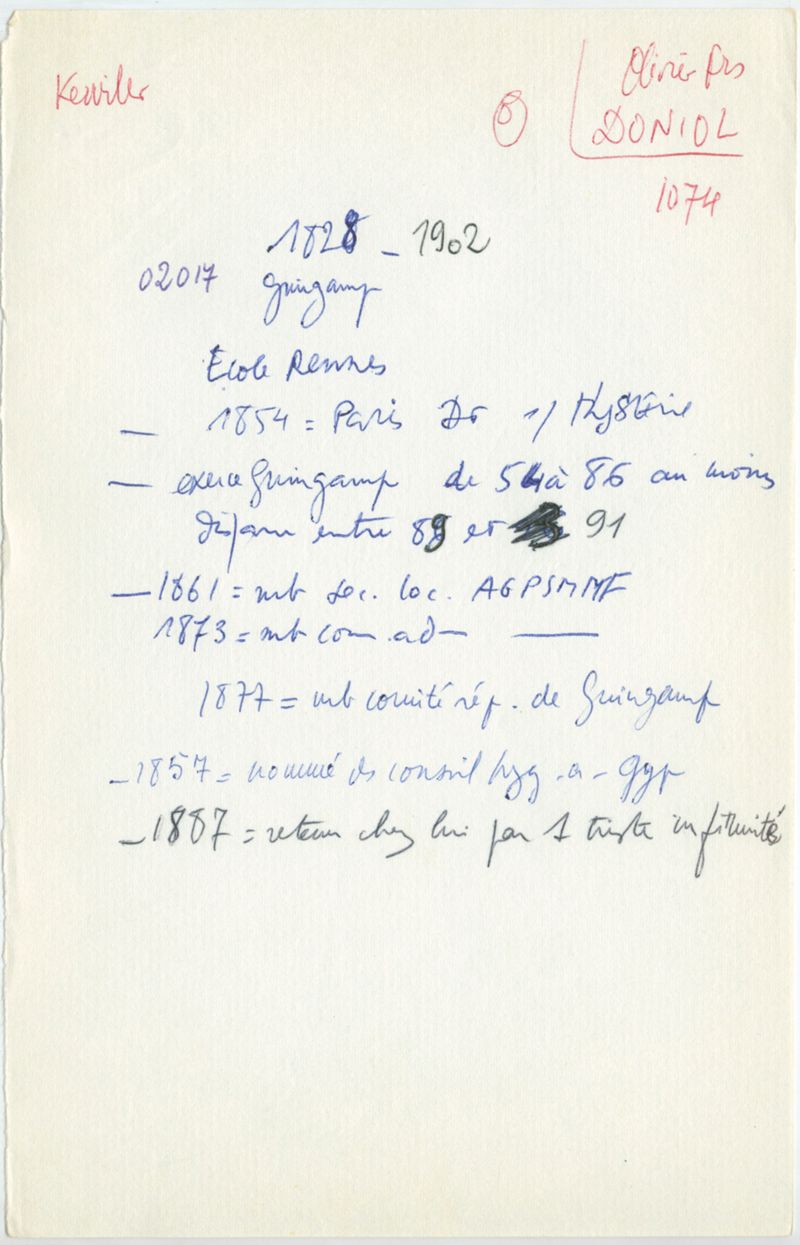 Kerviler
Olivier Frs
B
DONIOL
1074
1828 - 1902
02017 Guingamp
École Rennes
— 1854 = Paris Dr 1/ Hystérie
— exerce Guingamp de 54 à 86 au moins
disparu entre 89 et 91
— 1861 = mb sec. loc. AGPSMMF
1873 = mb com. ad — ——
1877 = mb comité rép. de Guingamp
- 1857 = nommé ds conseil hyg. a - Ggp
- 1887 = retenu chez lui par 1 triste infirmité